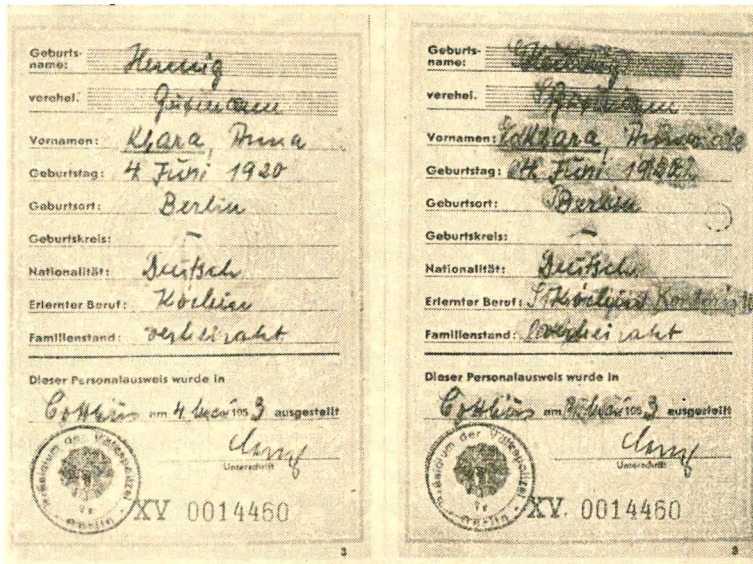 Geburts-
name: Hennig
verehel. Gutmann
Vornamen: Klara, Anna
Geburtstag: 4. Juni 1920
Geburtsort: Berlin
Geburtskreis: —
Nationalität: Deutsch
Erlernter Beruf: Köchin
Familienstand: verheiratet
Dieser Personalausweis wurde in
Cottbus am 4. 195 3 ausgestellt
Unterschrift
Präsidium der Volkspolizei
Berlin
XV 0014460
3
Geburts-
name:
verehel.
Vornamen: Klara,
Geburtstag: Juni
Geburtsort: Berlin
Geburtskreis: —
Nationalität: Deutsch
Erlernter Beruf: Köchin
Familienstand: verheiratet
Dieser Personalausweis wurde in
Cottbus am 195 3 ausgestellt
Unterschrift
Präsidium der Volkspolizei
Berlin
XV 0014460
3